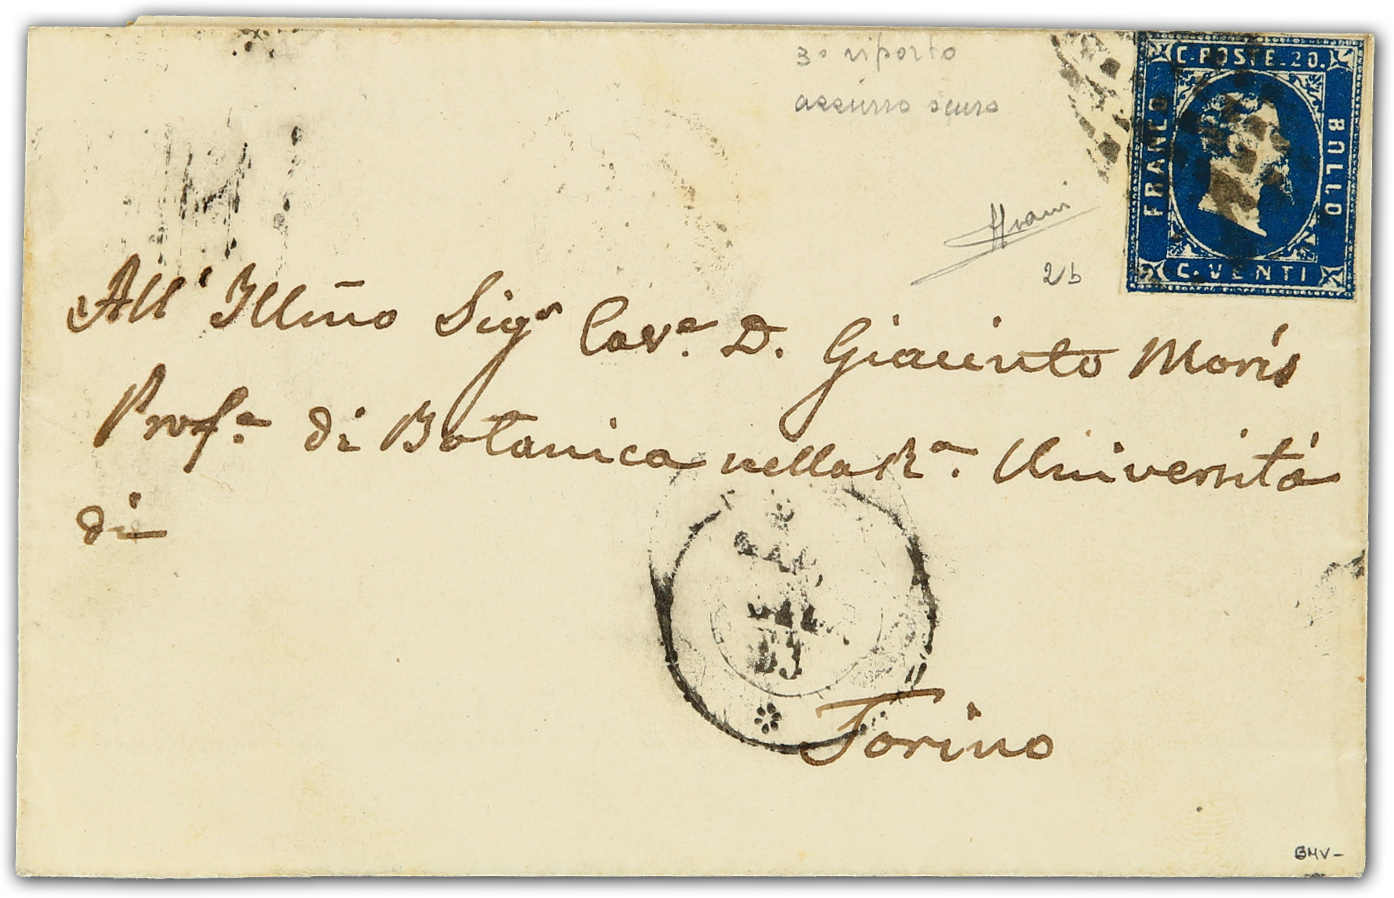 3º riporto
azzurro scuro
C. POSTE. 20.
FRANCO
BOLLO
C. VENTI
2b
All' Illm̃o Sigr Cave. D. Giacinto Moris
Profe. di Botanica nella Ra. Università
di
GEN.
53
Torino
GMV-